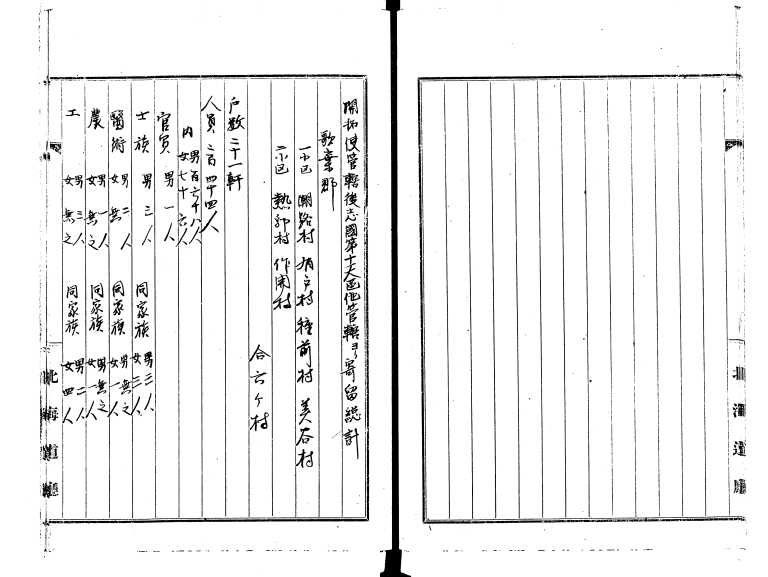 開拓使管轄後志國第十大区他管轄ヨリ寄留総計
歌棄郡
一小区 潮路村 有戸村 種前村 美谷村
二小区 熱郛村 作開村
合六ケ村
戸数二十一軒
人員二百四十四人
内 男百六十八人
女七十六人
官員 男一人
士族 男三人 同家族 男三人
女三人
醫術 男二人 同家族 男無之
女無 女一人
農 男一人 同家族 男無之
女無之 女一人
工 男三人 同家族 男二人
女無之 女四人
北海道廳
北海道廳